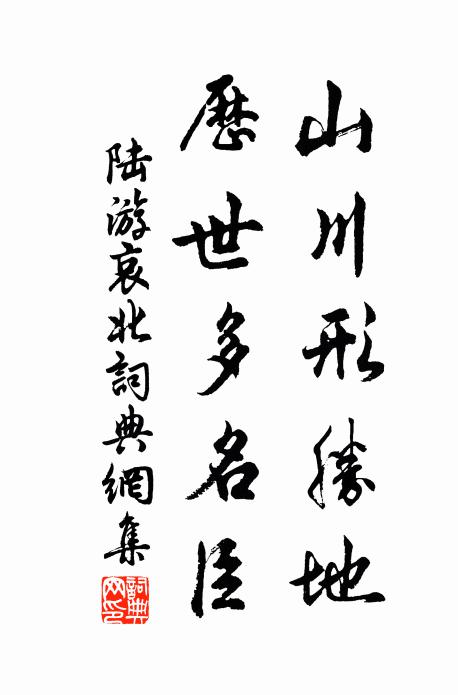 山川形勝地
歷世多名臣
陸游哀北詞典網集
詞典網印